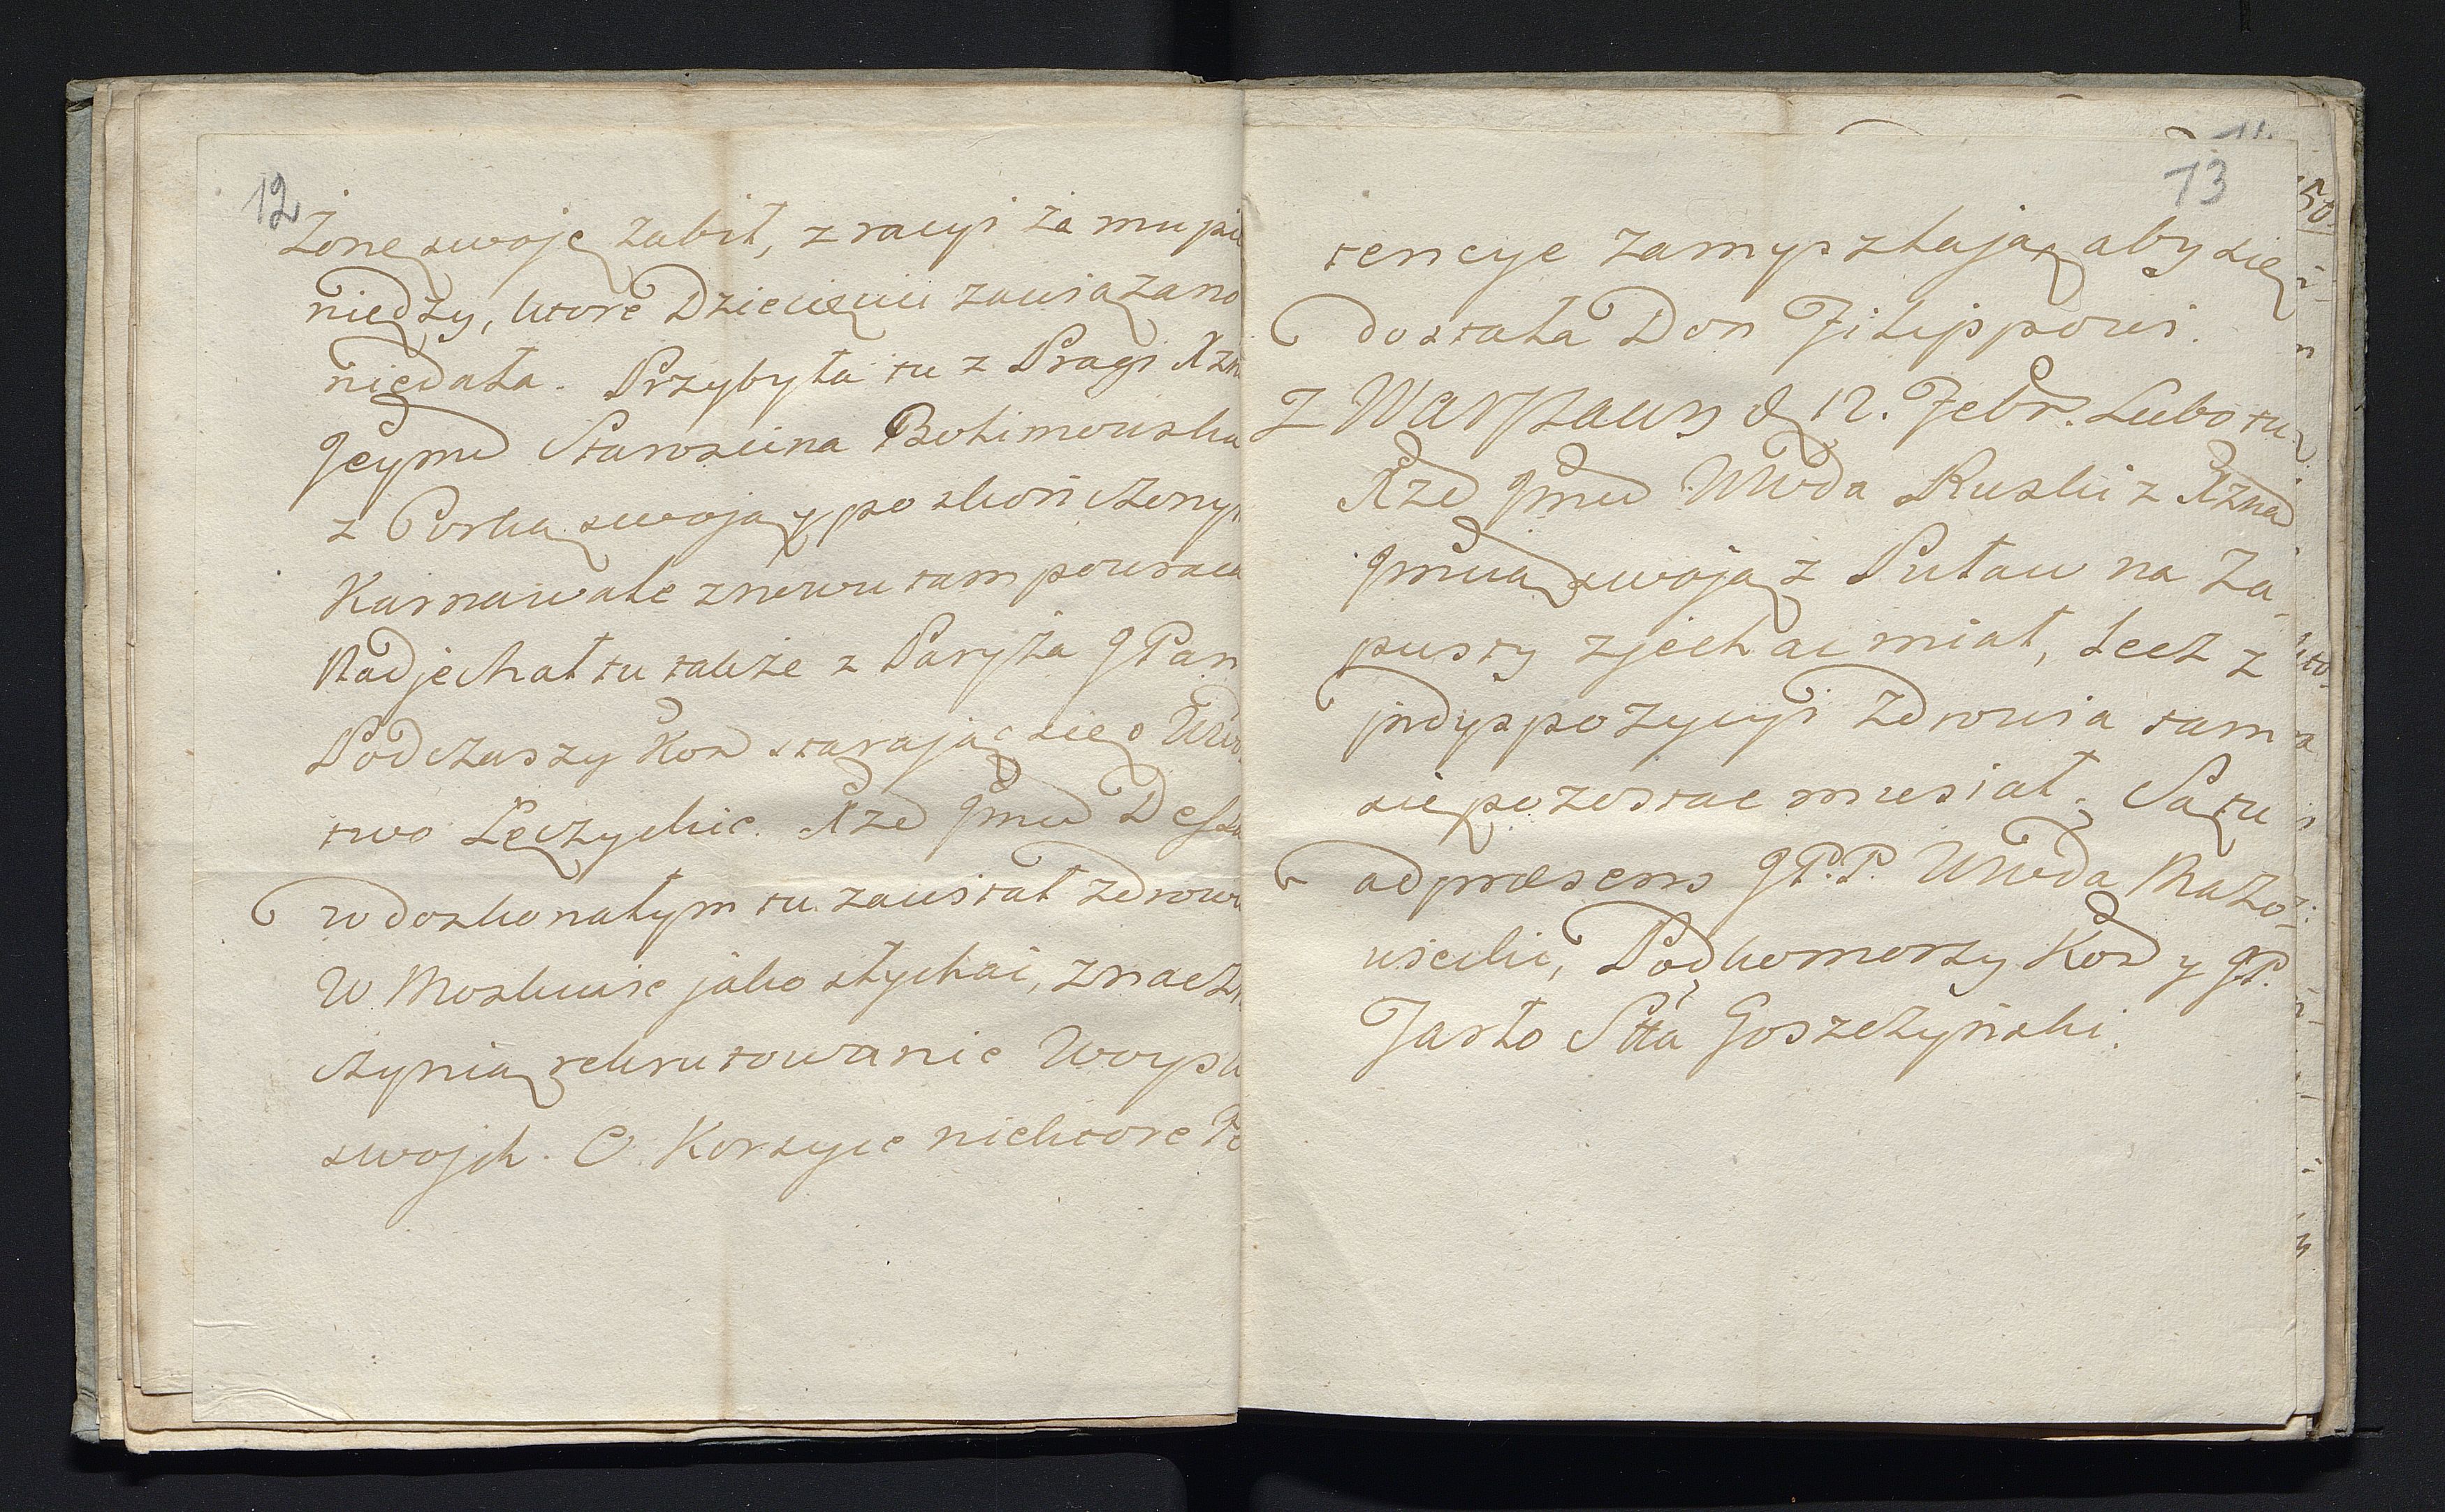 12
Zonę swoję zabił, z racyi że mu pie
niędzy, ktore Dziecięciu zawiązano
niedała. Przybyła tu z Pragi Xzn
Jeymć Starościna Bolimowska
z Corką swoją y po skończonym
Karnawale znowu tam powraca
Nadjechał tu także z Paryża JPan
Podczaszy Kor starając się o Wwo
two Łęczyckie. Xże Jmć Dess
w doskonałym tu zawitał zdrowi
W Moskwie jako słychać, znaczn
czynią rekrutowanie Woysk
swojch. O Korsyce niektore Po
13
tencye zamyszlają, aby się
dostała Don Filippowi.
Z Warszawy d 12. Febr. Lubo tu
Xże Jmć Wwda Ruski z Xzną
Jmcią swoją z Puław na Za-
pusty zjechać miał, lecz z
jndyspozycyi Zdrowia tam
się pozostać musiał. Są tu
ad præsens JP.P. Wwda Mazo-
wiecki, Podkomorzy Kor y JP.
Jasło Stta Goszczyński.